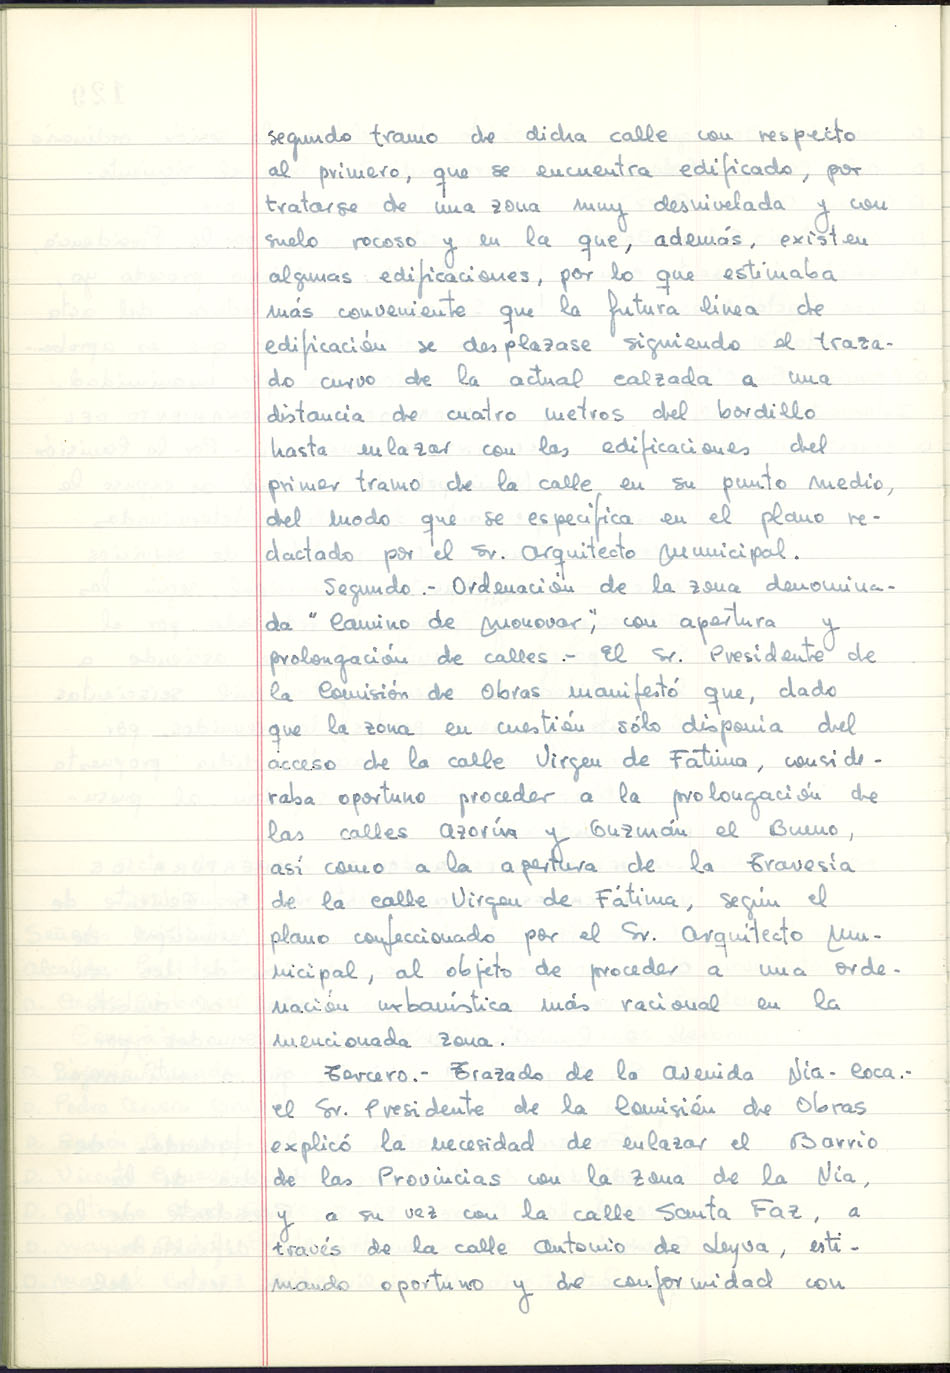 segundo tramo de dicha calle con respecto
al primero, que se encuentra edificado, por
tratarse de una zona muy desnivelada y con
suelo rocoso y en la que, además, existen
algunas edificaciones, por lo que estimaba
más conveniente que la futura línea de
edificación se desplazase siguiendo el traza-
do curvo de la actual calzada a una
distancia de cuatro metros del bordillo
hasta enlazar con las edificaciones del
primer tramo de la calle, en su punto medio,
del modo que se especifica en el plano re-
dactado por el Sr. Arquitecto Municipal.
Segundo.- Ordenación de la zona denomina-
da "Camino de Monovar", con apertura y
prolongación de calles.- El Sr. Presidente de
la Comisión de Obras manifestó que, dado
que la zona en cuestión sólo disponía del
acceso de la calle Virgen de Fátima, conside-
raba oportuno proceder a la prolongación de
las calles Azorín y Guzmán el Bueno,
así como a la apertura de la Travesía
de la calle Virgen de Fátima, según el
plano confeccionado por el Sr. Arquitecto Mu-
nicipal, al objeto de proceder a una orde-
nación urbanística más racional en la
mencionada zona.
Tercero.- Trazado de la Avenida Nía-Coca.-
el Sr. Presidente de la Comisión de Obras
explicó la necesidad de enlazar el Barrio
de las Provincias con la zona de la Nía,
y a su vez con la calle Santa Faz, a
través de la calle Antonio de Leyva, esti-
mando oportuno y de conformidad con